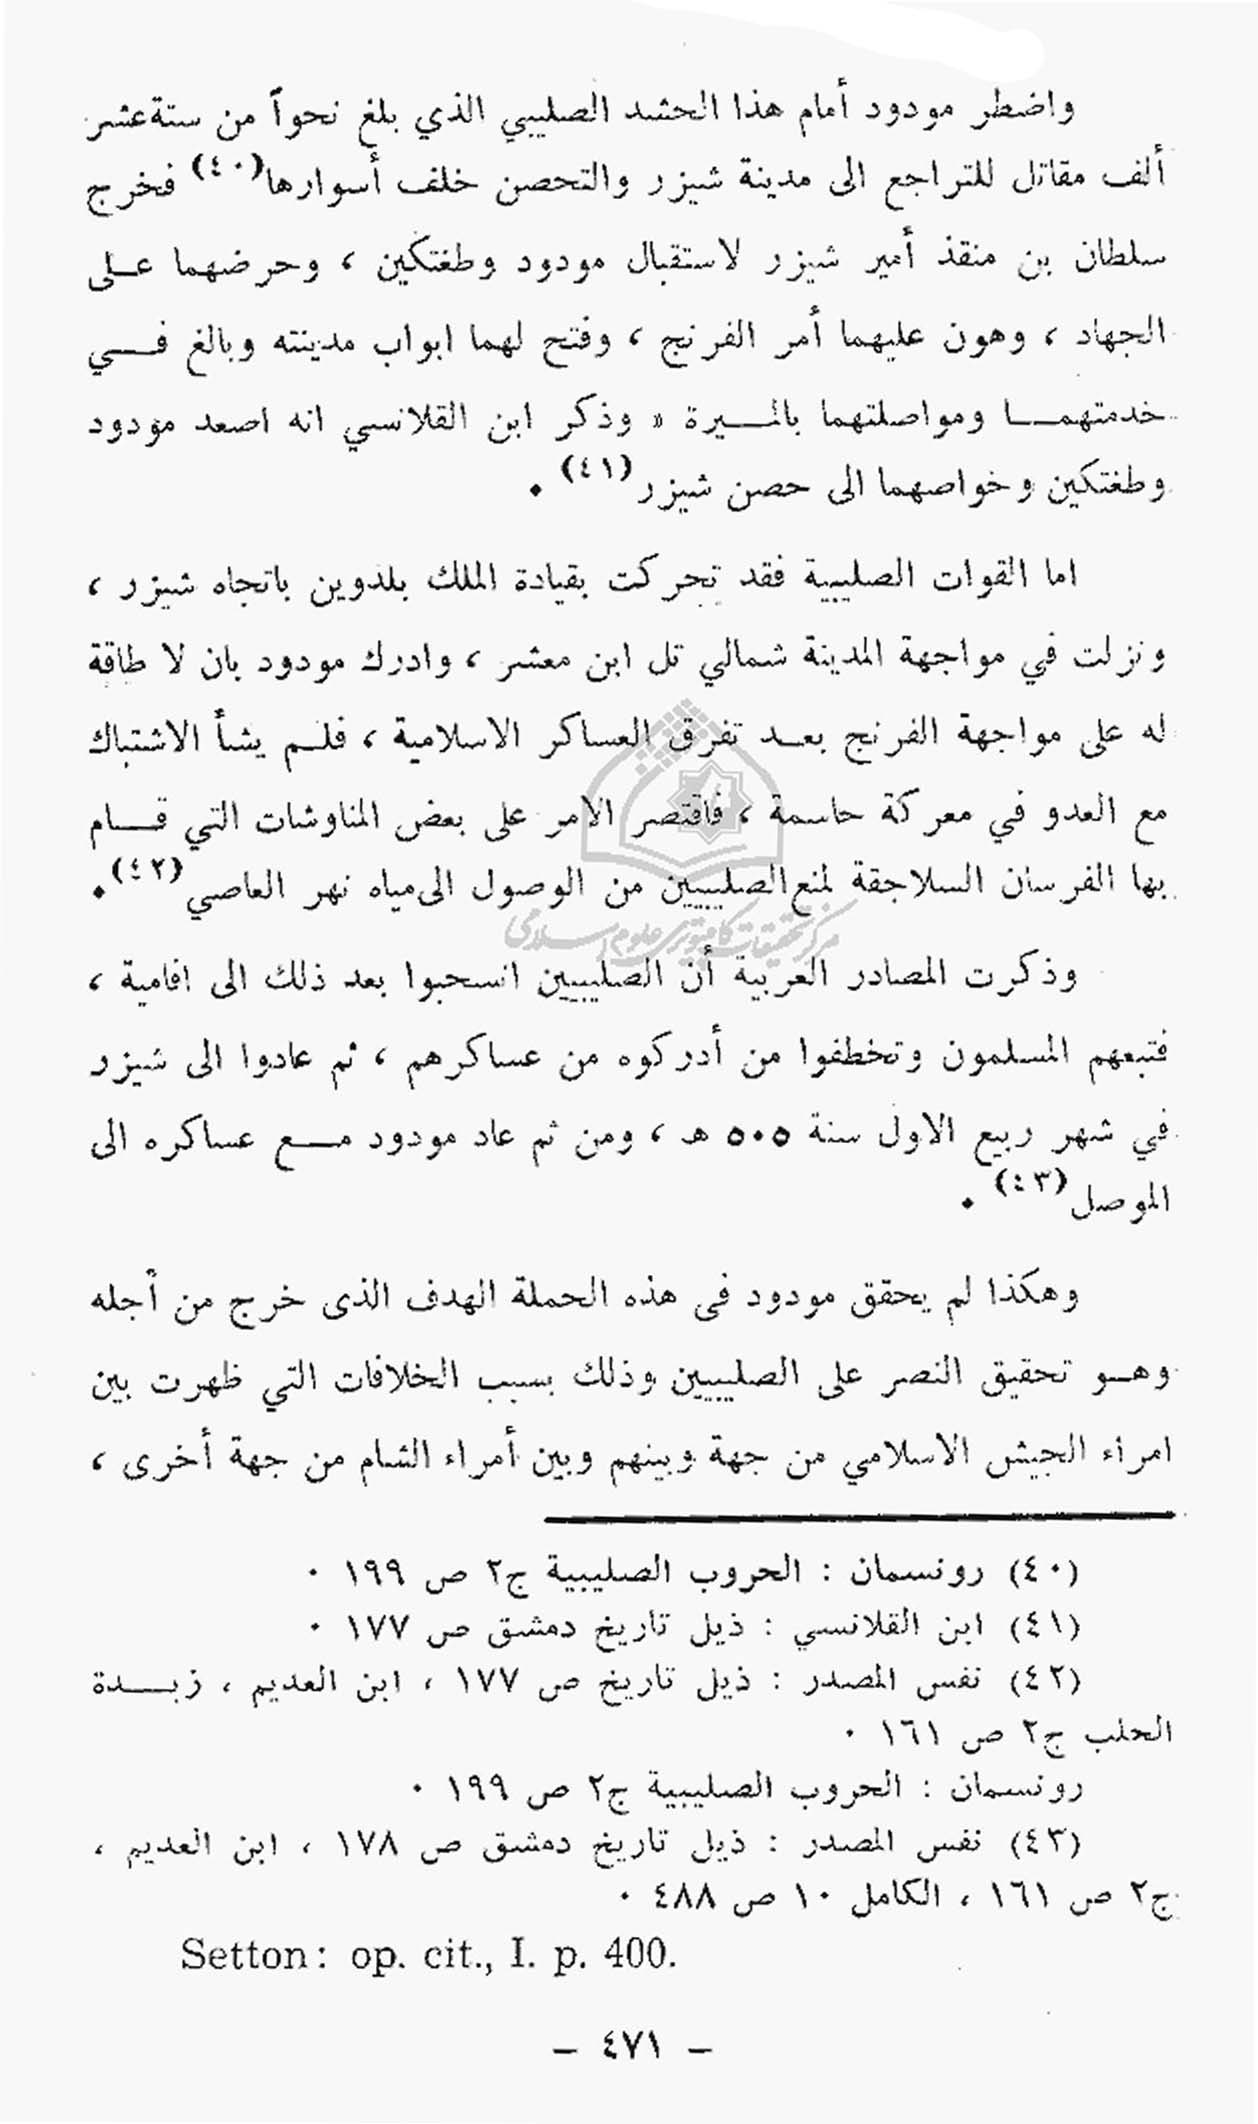 واضطر مودود أمام هذا الحشد الصليبي الذي بلغ نحواً من ستة عشر
ألف مقاتل للتراجع الى مدينة شيزر والتحصن خلف أسوارها(٤٠) فخرج
سلطان بن منقذ أمير شيزر لاستقبال مودود وطغتكين ، وحرضهما عـلى
الجهاد ، وهون عليهما أمر الفرنج ، وفتح لهما ابواب مدينته وبالغ فـــي
خدمتهمـــا ومواصلتهما بالمـــيرة » وذكر ابن القلانسي انه اصعد مودود
وطغتكين وخواصهما الى حصن شيزر(٤١) .
اما القوات الصليبية فقد تحركت بقيادة الملك بلدوين باتجاه شيزر ،
ونزلت في مواجهة المدينة شمالي تل ابن معشر ، وادرك مودود بان لا طاقة
له على مواجهة الفرنج بعـد تفرق العساكر الاسلامية ، فلـم يشأ الاشتباك
مع العدو في معركة حاسمة ، فاقتصر الامر على بعض المناوشات التي قـــام
بها الفرسان السلاجقة لمنع الصليبيين من الوصول الى مياه نهر العاصي(٤٢) .
مركز تحقيقات كامپيوتری علوم اسلامی
وذكرت المصادر العربية أن الصليبيين انسحبوا بعد ذلك الى افامية ،
فتبعهم المسلمون وتخطفوا من أدركوه من عساكرهم ، ثم عادوا الى شيزر
في شهر ربيع الاول سنة ٥٠٥ هـ ، ومن ثم عاد مودود مـــع عساكره الى
الموصل(٤٣) .
وهكذا لم يحقق مودود فى هذه الحملة الهدف الذى خرج من أجله
وهـــو تحقيق النصر على الصليبيين وذلك بسبب الخلافات التي ظهرت بين
امراء الجيش الاسلامي من جهة وبينهم وبين أمراء الشام من جهة أخرى ،
(٤٠) رونسمان : الحروب الصليبية ج٢ ص ١٩٩ .
(٤١) ابن القلانسي : ذيل تاريخ دمشق ص ١٧٧ .
(٤٢) نفس المصدر : ذيل تاريخ ص ١٧٧ ، ابن العديم ، زبـــدة
الحلب ج٢ ص ١٦١ .
رونسمان : الحروب الصليبية ج٢ ص ١٩٩ .
(٤٣) نفس المصدر : ذيل تاريخ دمشق ص ١٧٨ ، ابن العديم ،
ج٢ ص ١٦١ ، الكامل ١٠ ص ٤٨٨ .
Setton: op. cit., I. p. 400.
– ٤٧١ –